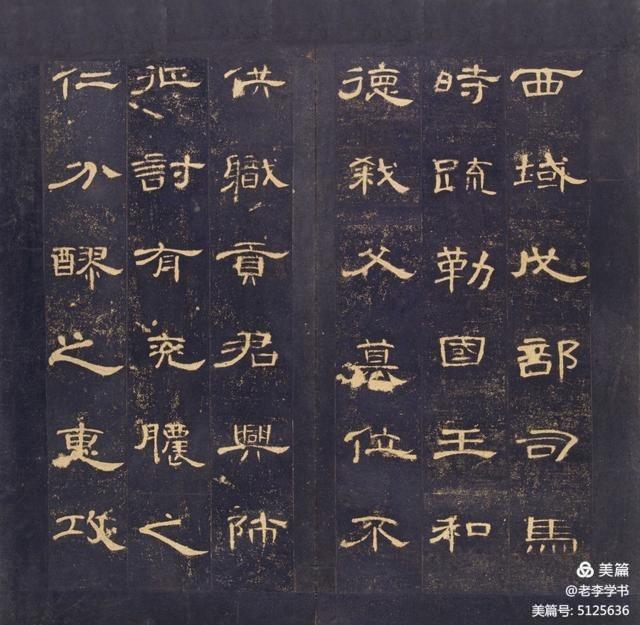 西域戊部司馬
時疏勒國王和
德弒父篡位不
供職貢君興師
征討有兖膿之
仁分醪之惠攻
美篇
@老李学书
美篇号: 5125636